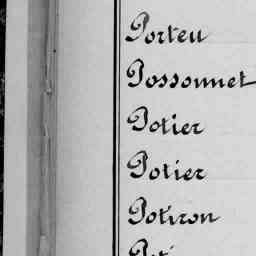 Porteu
Possonnet
Potier
Potier
Potiron